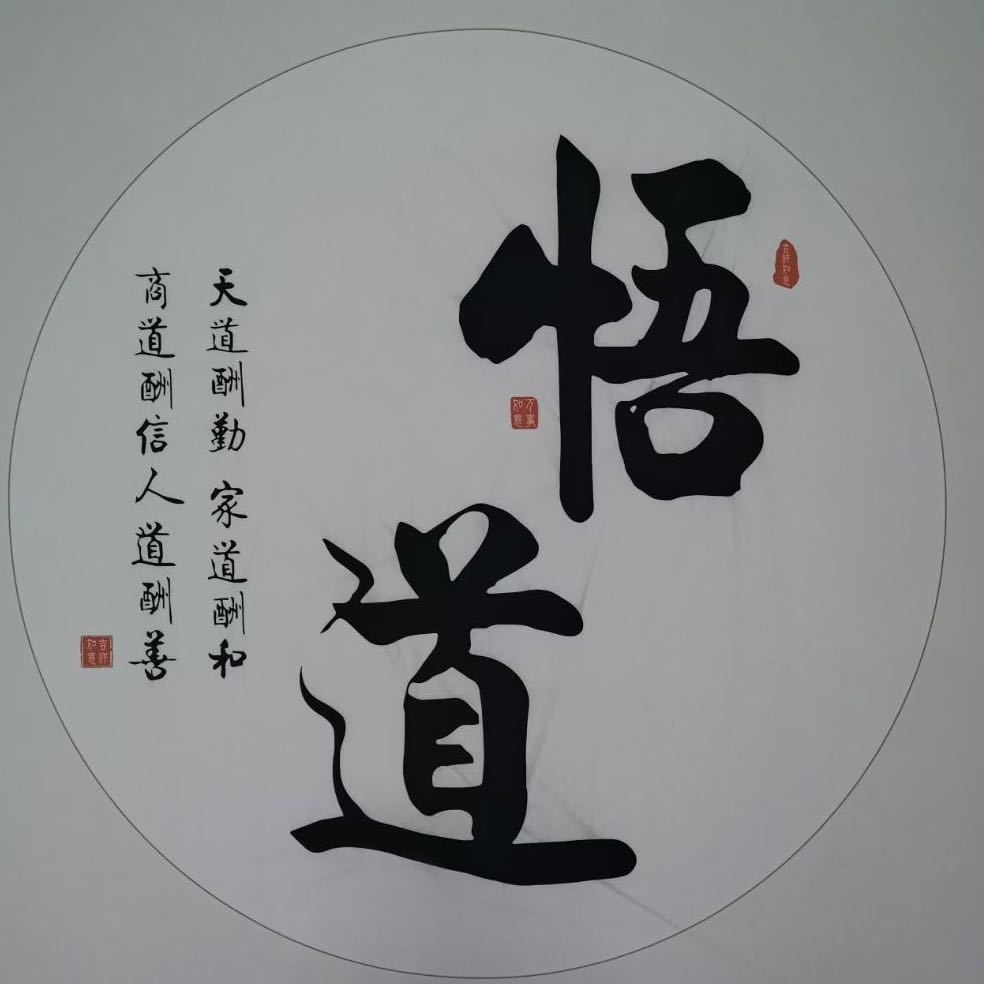 悟道
天道酬勤 家道酬和
商道酬信人道酬善
吉祥如意
万事如意
吉祥如意